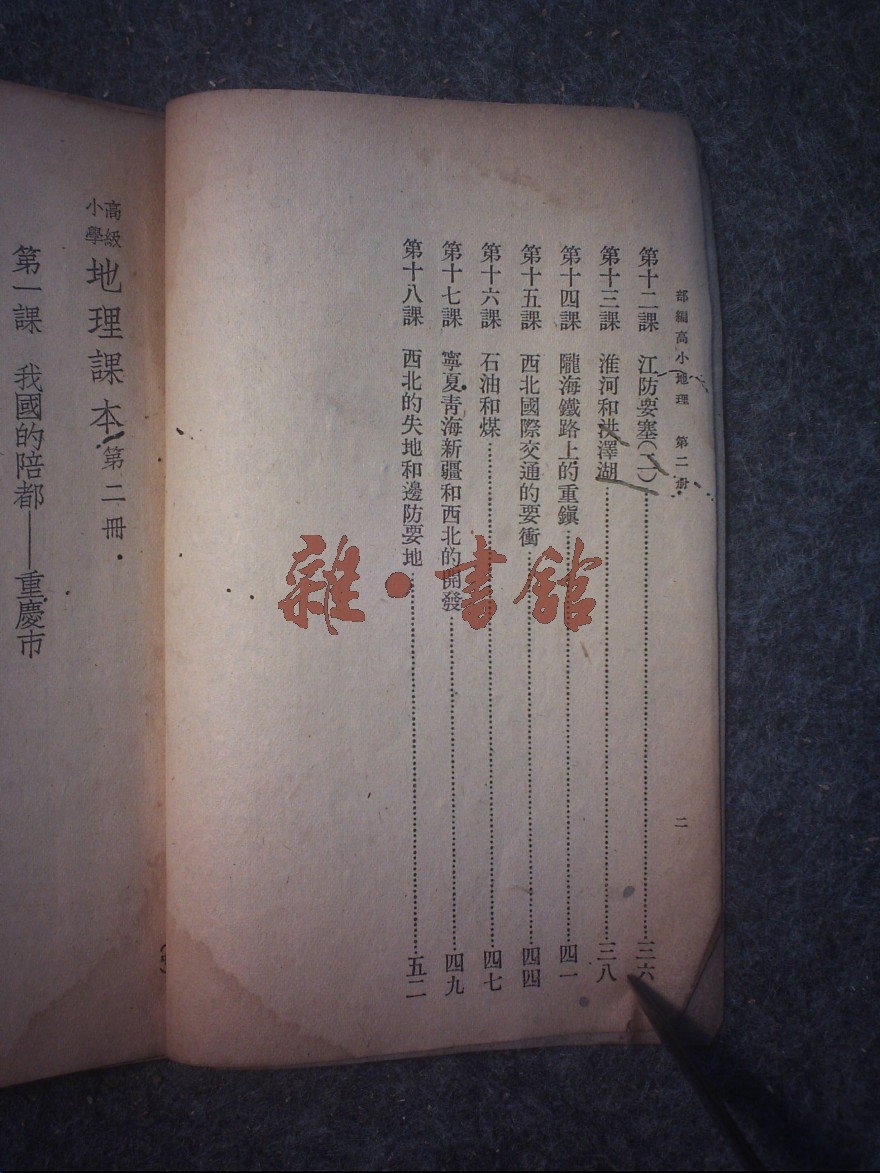 部編高小地理　第二冊
二
第十二課　江防要塞(二)……三六
第十三課　淮河和洪澤湖……三八
第十四課　隴海鐵路上的重鎮……四一
第十五課　西北國際交通的要衝……四四
第十六課　石油和煤……四七
第十七課　寧夏青海新疆和西北的開發……四九
第十八課　西北的失地和邊防要地……五二
高級小學地理課本第二冊
第一課　我國的陪都——重慶市
雜·書館